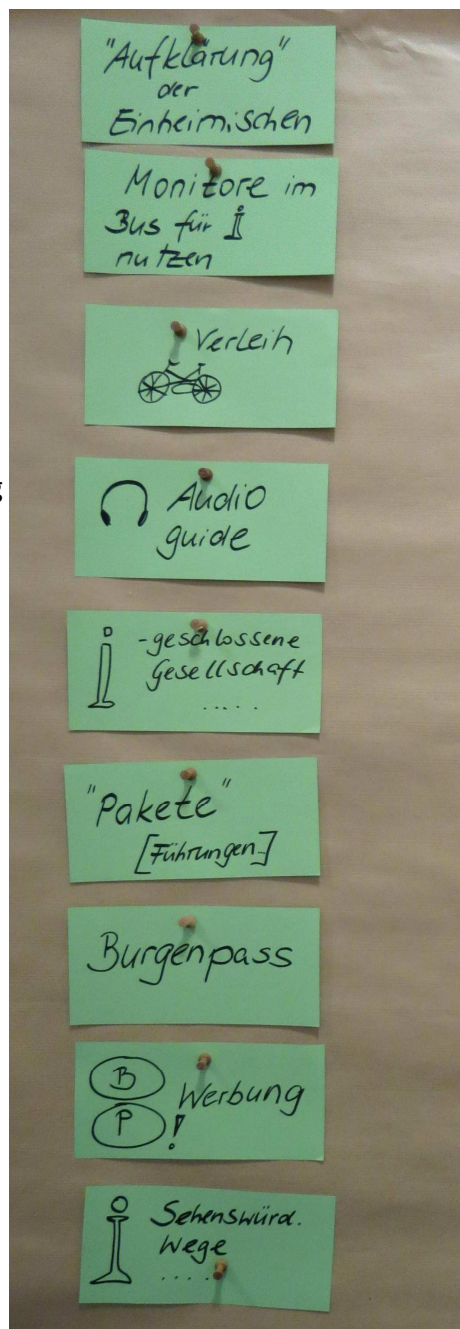 "Aufklärung"
der
Einheimischen
Monitore im
Bus für i
nutzen
Verleih
Audio
guide
i -geschlossene
Gesellschaft
.....
"Pakete"
[Führungen..]
Burgenpass
B
P
Werbung
!
i Sehenswürd.
Wege
.....
g